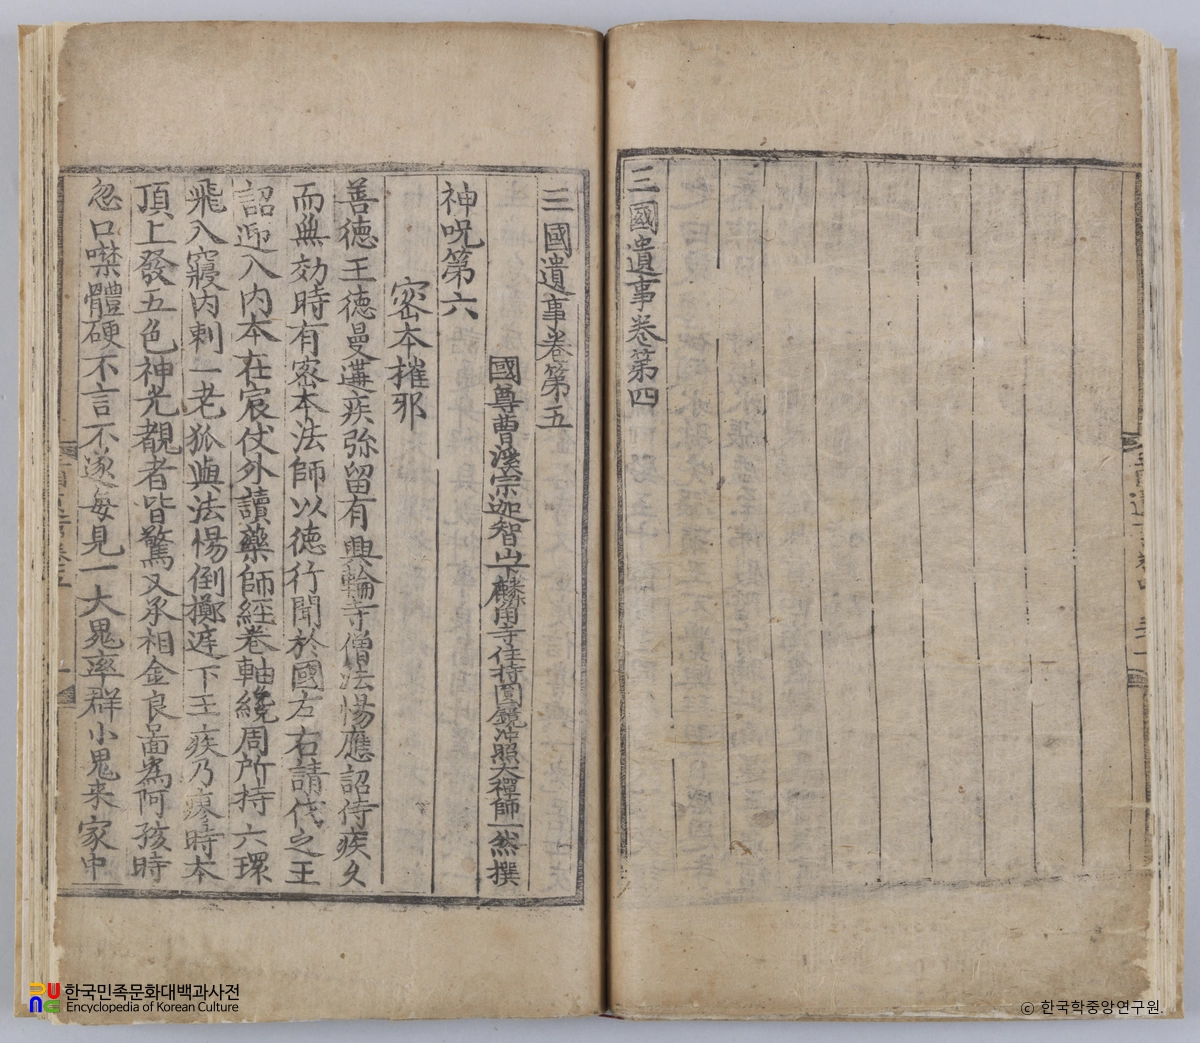 三國遺事卷第四
三國遺事卷第五
國尊曹溪宗迦智山下麟角寺住持圓鏡冲照大禪師一然撰
神呪第六
密本摧邪
善德王德曼遘疾弥留有興輪寺僧法惕應詔侍疾久
而無効時有密本法師以德行聞於國左右請代之王
詔迎入內本在宸仗外讀藥師經卷軸纔周所持六環
飛入寢內刺一老狐與法惕倒擲庭下王疾乃瘳時本
頂上發五色神光覩者皆驚又承相金良啚為阿孩時
忽口噤體硬不言不遂每見一大鬼率群小鬼来家中
한국민족문화대백과사전
Encyclopedia of Korean Culture
ⓒ 한국학중앙연구원.